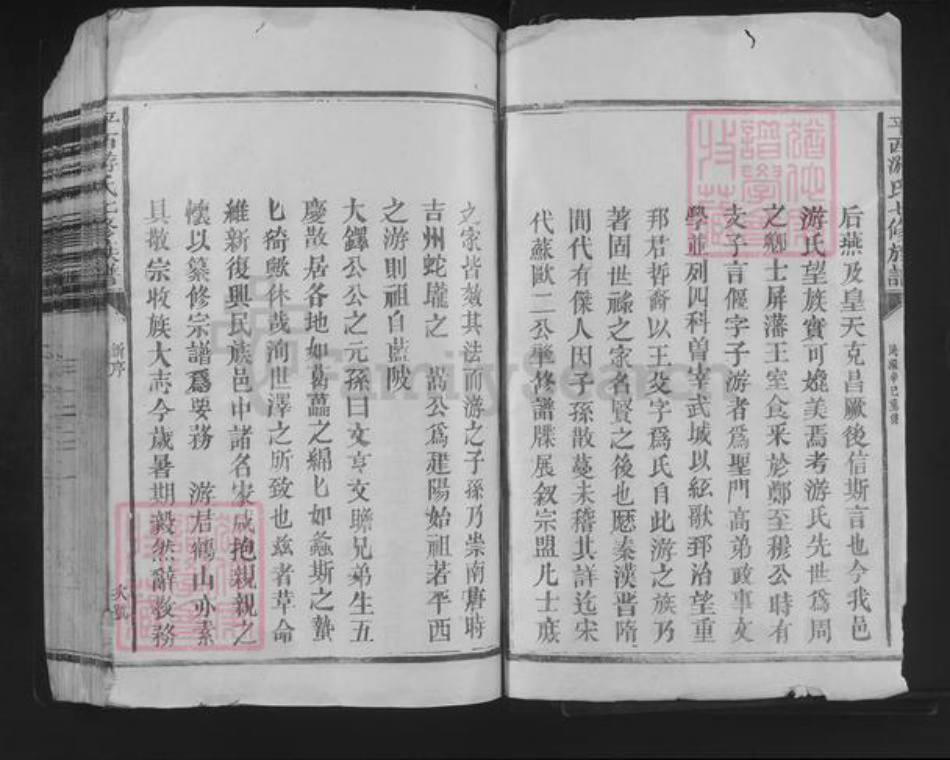 平西游氏七修族譜
后燕及皇天克昌厥後信斯言也今我邑
游氏望族實可媲美焉考游氏先世爲周
之卿士屏藩王室食采於鄭至穆公時有
支子言偃字子游者爲聖門高弟政事文
學並列四科曽宰武城以絃歌郅治望重
邦君哲裔以王父字爲氏自此游之族乃
著固世祿之家名賢之後也厯秦漢晋隋
間代有傑人因子孫散蔓未稽其詳迄宋
代蘇歐二公肇修譜牒展叙宗盟凢士庶
之家皆效其法而游之子孫乃崇南唐時
吉州蛇壠之 暠公爲建陽始祖若平西
之游則祖自藍陂
大鐸公公之元孫曰文亨文聸兄弟生五
慶散居各地如葛藟之綿匕如螽斯之蟄
匕猗歟休哉洵世澤之所致也兹者革命
維新復興民族邑中諸名家咸抱親親之
懷以纂修宗譜爲要務 游君鶴山亦素
具敬宗收族大志今歲暑期毅然辭教務
平西游氏七修族譜
新序
FamilySearch